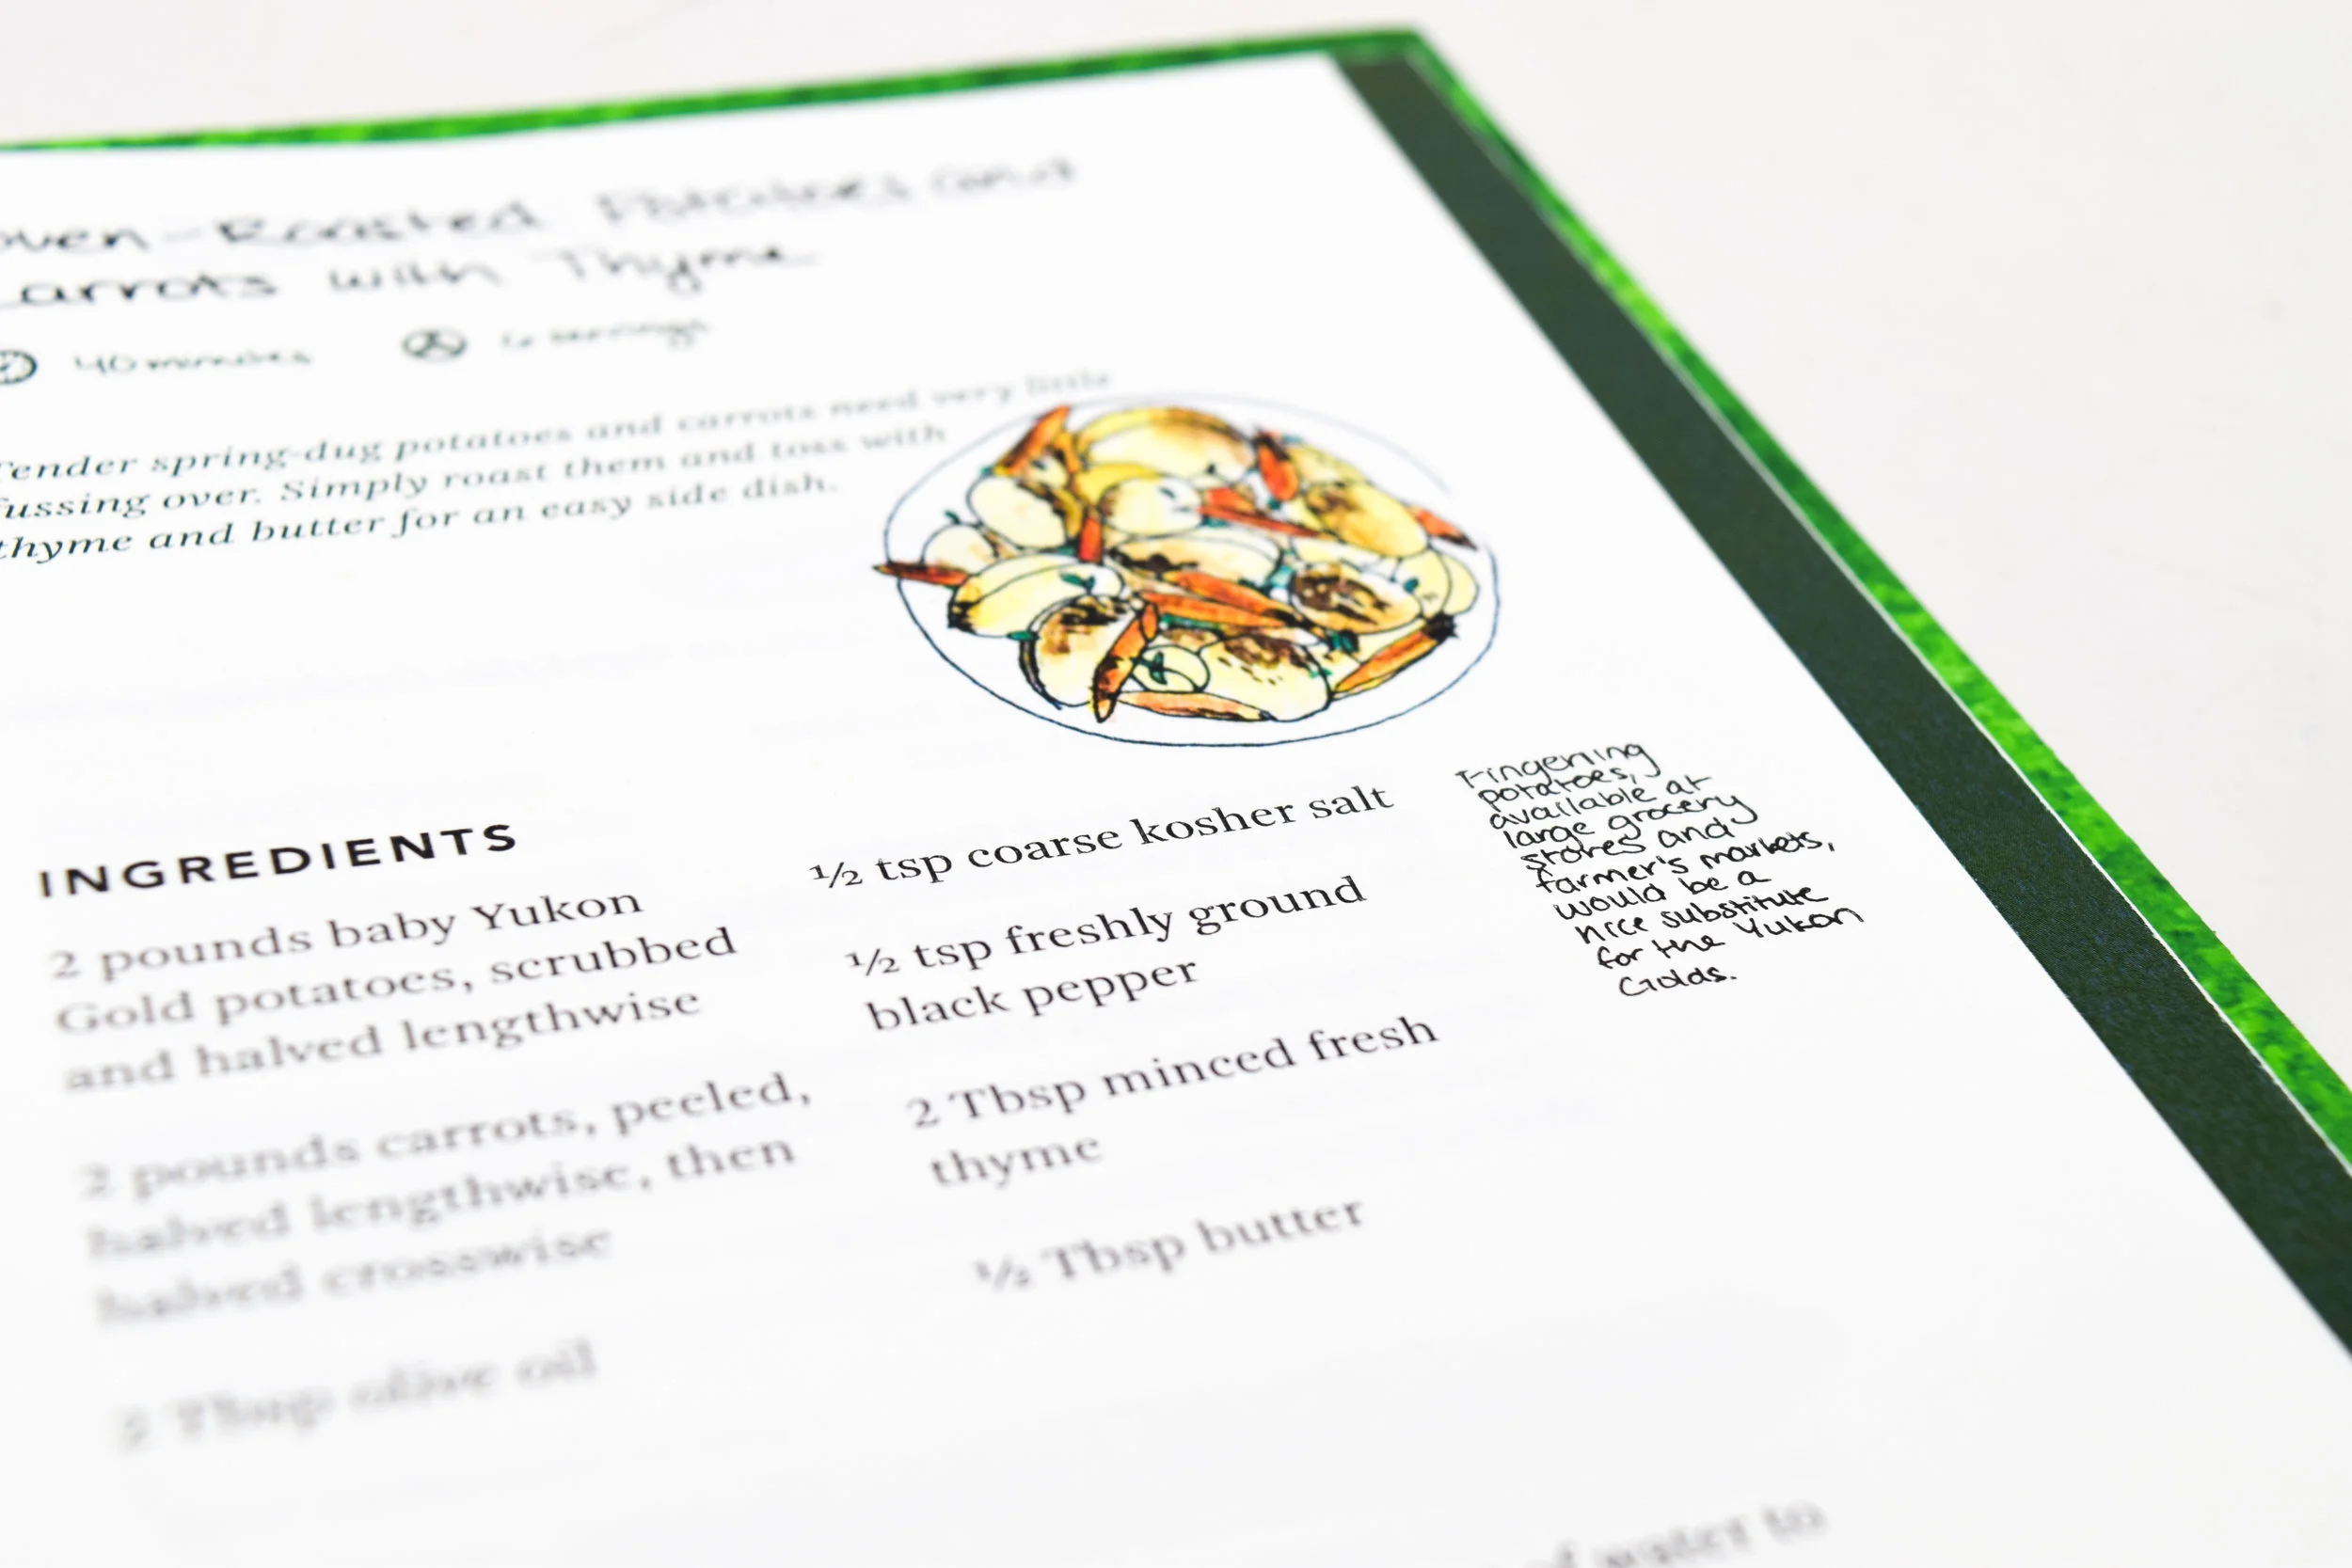 oven-Roasted Potatoes and
arrots with Thyme
40 minutes
6 servings
Tender spring-dug potatoes and carrots need very little
fussing over. Simply roast them and toss with
thyme and butter for an easy side dish.
INGREDIENTS
2 pounds baby Yukon
Gold potatoes, scrubbed
and halved lengthwise
2 pounds carrots, peeled,
halved lengthwise, then
halved crosswise
Tbsp olive oil
½ tsp coarse kosher salt
½ tsp freshly ground
black pepper
2 Tbsp minced fresh
thyme
½ Tbsp butter
Fingerling
potatoes,
available at
large grocery
stores and
farmer's markets,
would be a
nice substitute
for the Yukon
Golds.
of water to